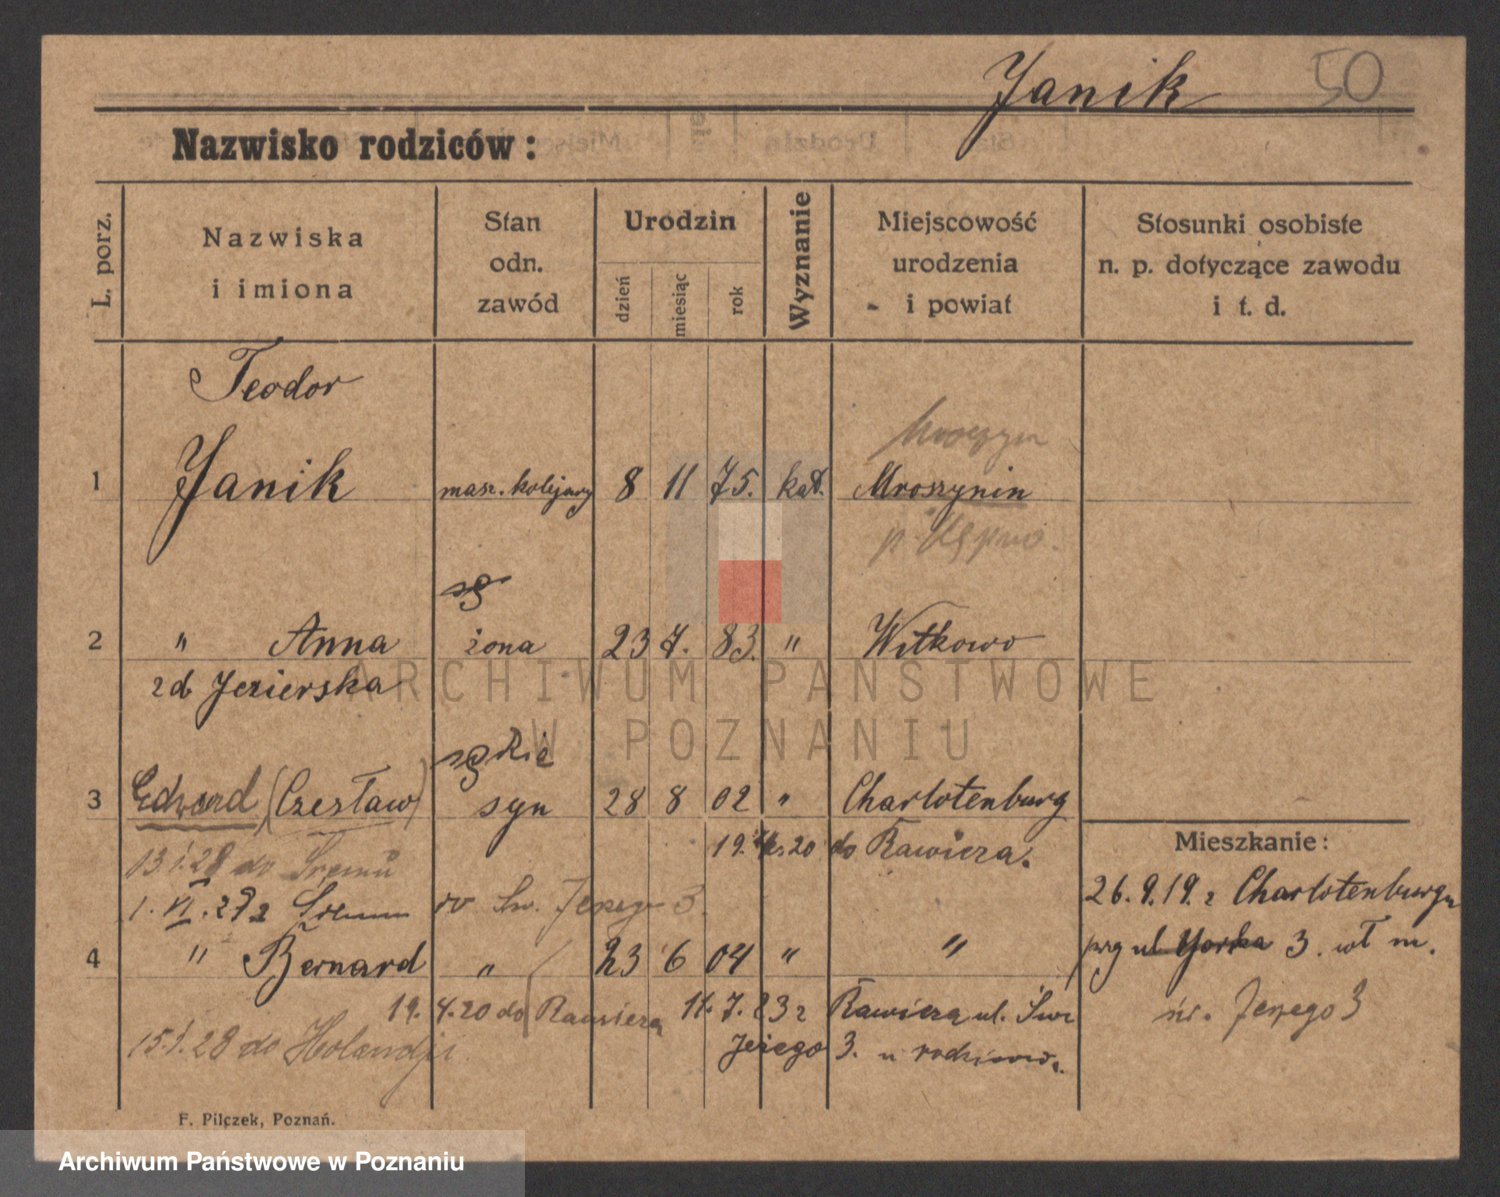 Janik 50
Nazwisko rodziców:
L. porz.
Nazwiska
i imiona
Stan
odn.
zawód
Urodzin
dzień
miesiąc
rok
Wyznanie
Miejscowość
urodzenia
i powiat
Stosunki osobiste
n. p. dotyczące zawodu
i t. d.
Teodor
1 Janik masz. kolejowy 8 11 75. kat. Mroszynin
p.
2 " Anna żona 23 7. 83. " Witkowo
zd Jezierska
3 Edward (Czesław) syn 28 8 02 " Charlotenburg
19. 20 do Rawicza.
13.1.28 do Śremu
1. VI. 28 z Św. Jerzego 3.
4 " Bernard " 23 6 04 " "
19. 4.20 do Rawicza 11. 7. 23 z Rawicza ul. Św
Jerzego 3. u rodziców.
15.1.28 do Holandji
Mieszkanie:
26.9.19. z Charlotenburga
ul Yorka 3. wł m.
św. Jerzego 3
F. Pilczek, Poznań.
ARCHIWUM PAŃSTWOWE
W POZNANIU
Archiwum Państwowe w Poznaniu